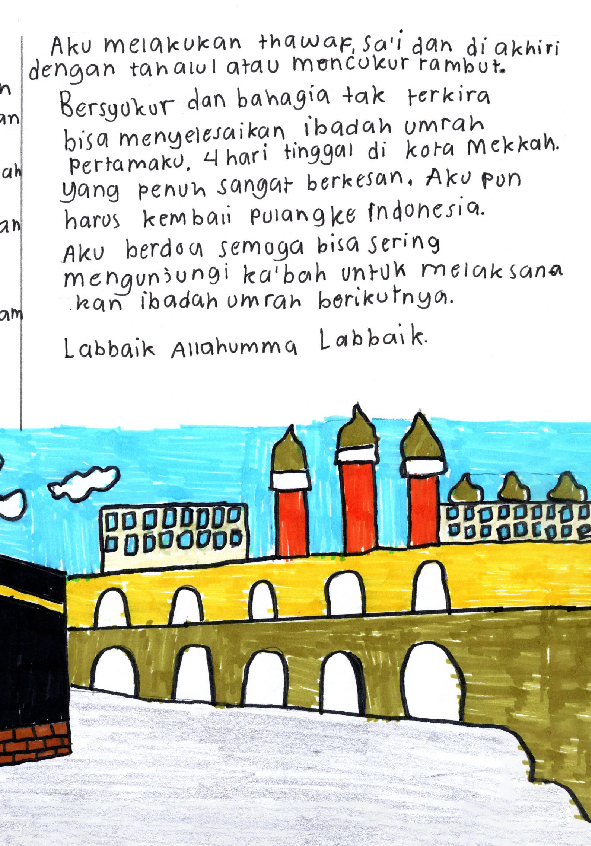 Aku melakukan thawaf, sa'i dan di akhiri
dengan tahalul atau mencukur rambut.
n
Bersyukur dan bahagia tak terkira
an
bisa menyelesaikan ibadah umrah
pertamaku. 4 hari tinggal di kota Mekkah.
ah
yang penuh sangat berkesan. Aku pun
harus kembali pulang ke Indonesia.
an
Aku berdoa semoga bisa sering
mengunjungi ka'bah untuk melaksana
kan ibadah umrah berikutnya.
am
Labbaik Allahumma Labbaik.